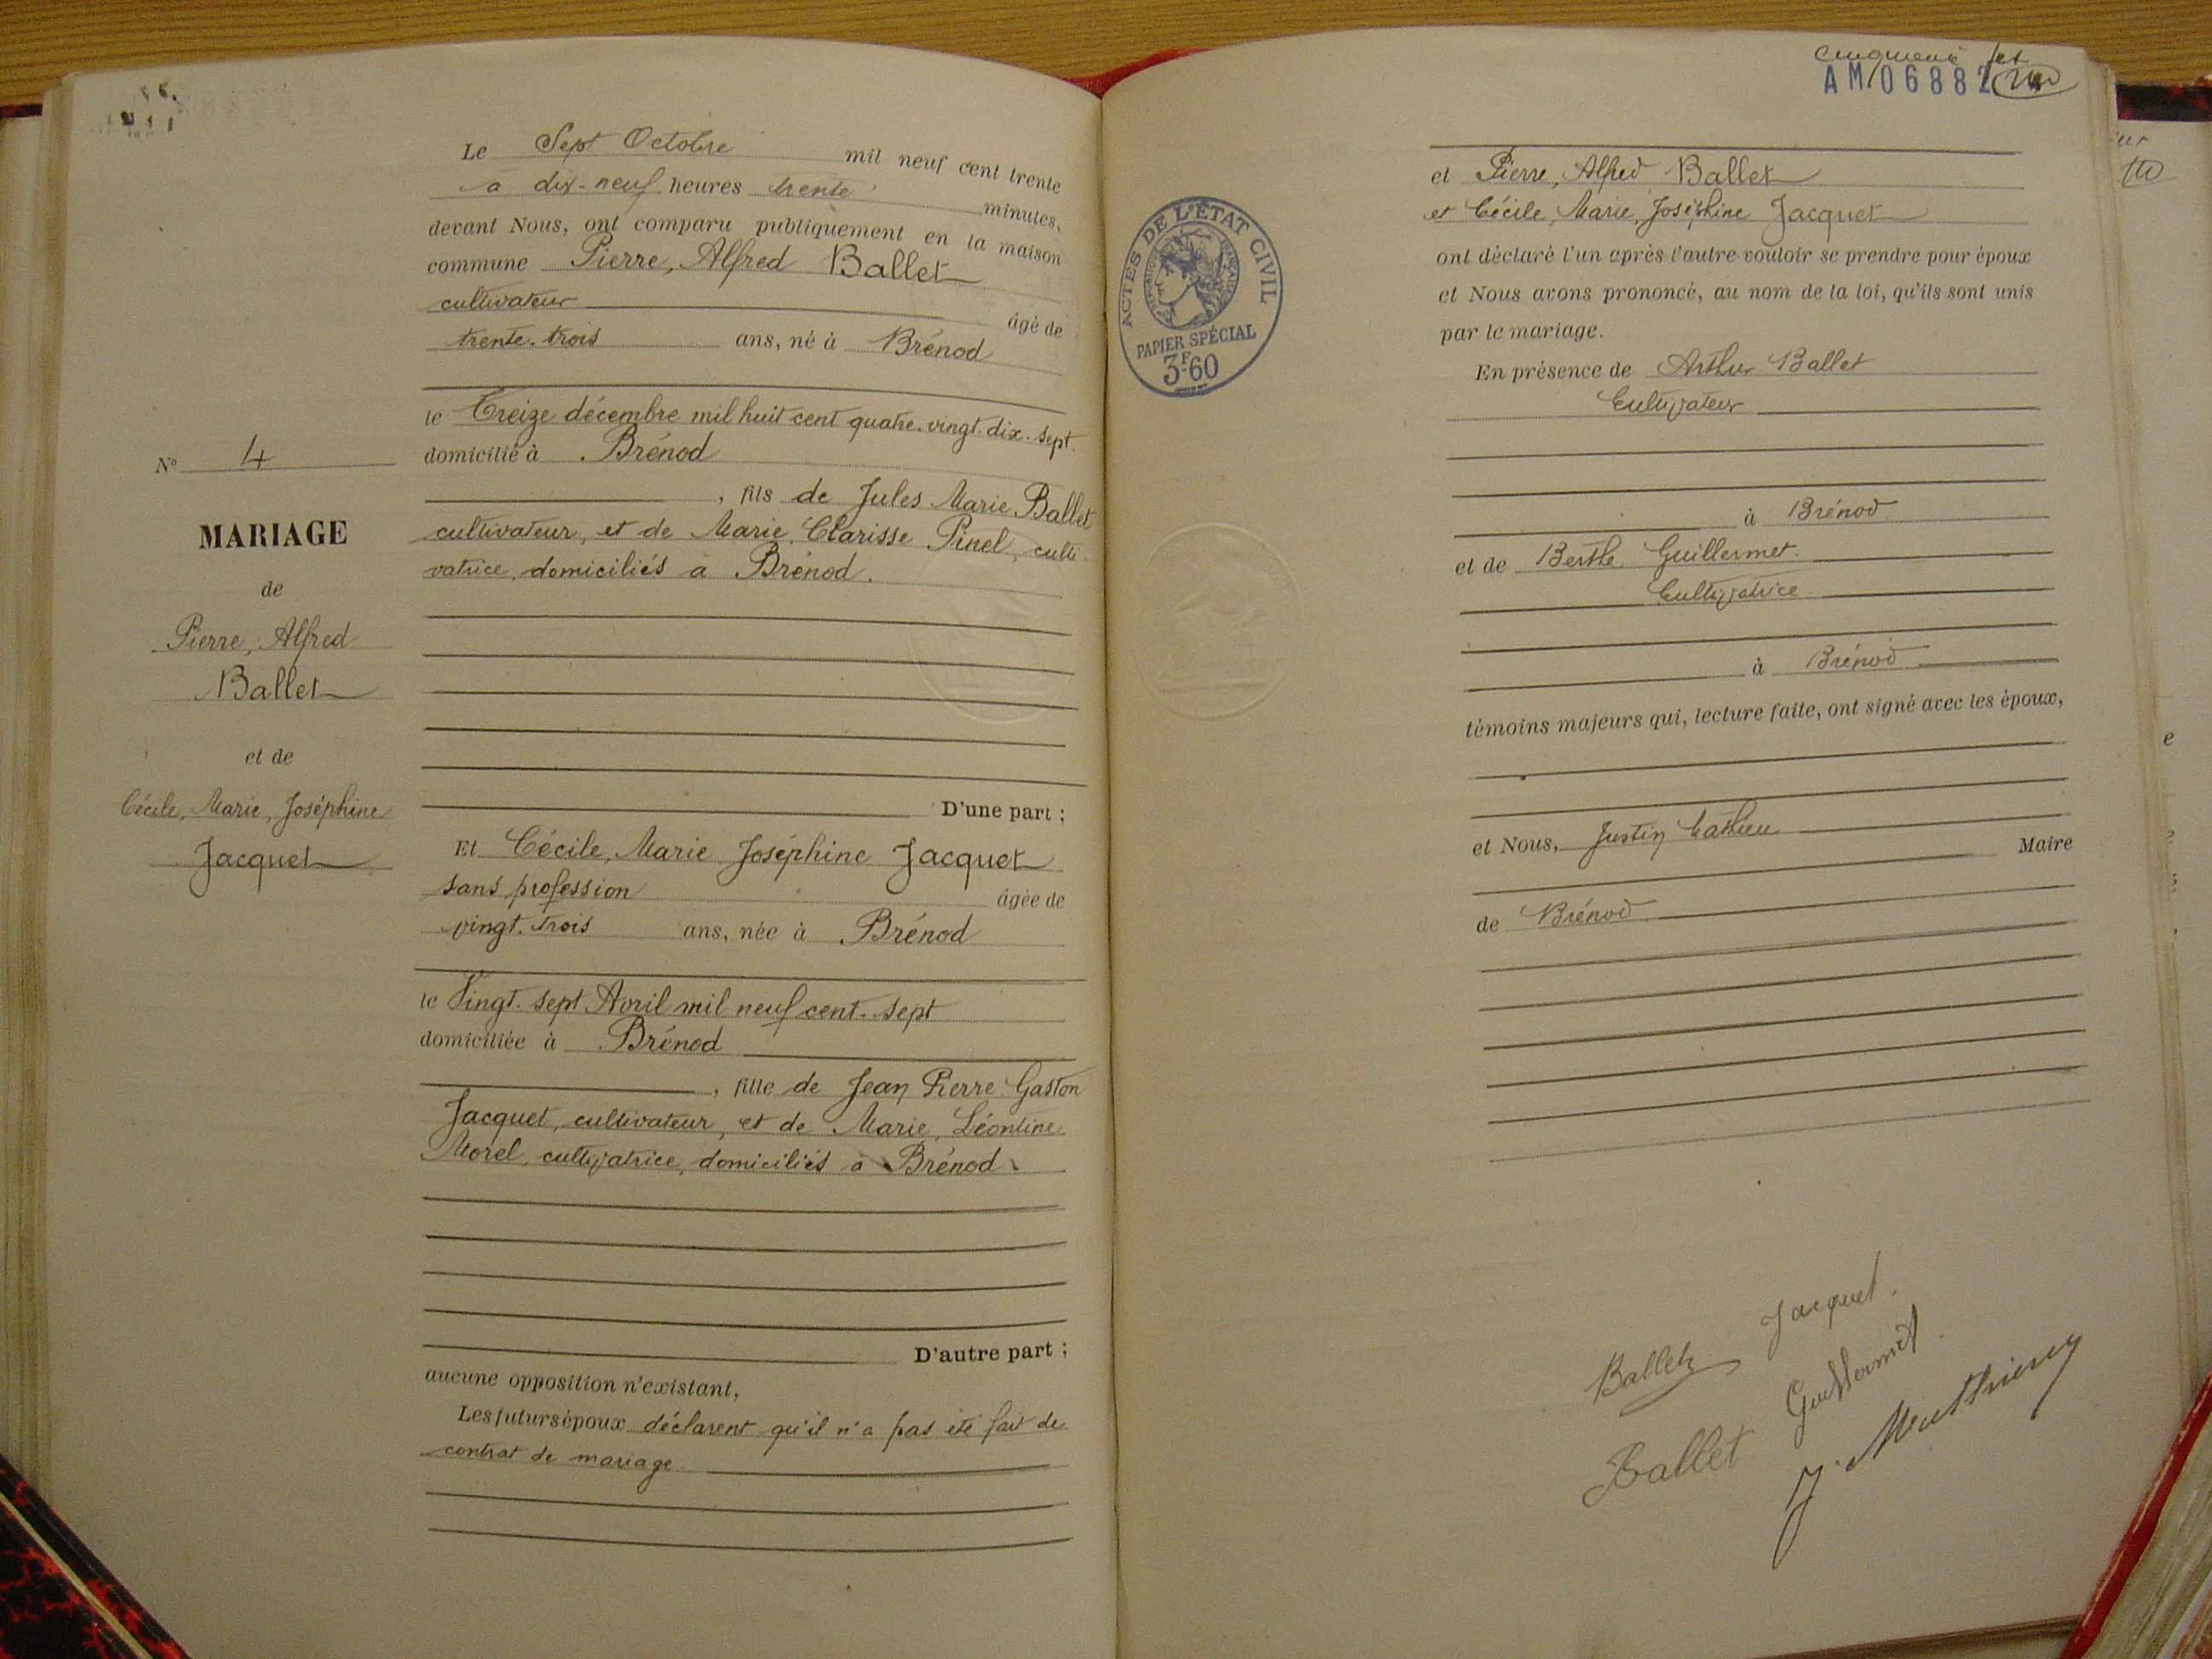 Le Sept Octobre mil neuf cent trente
à dix-neuf heures trente minutes,
devant Nous, ont comparu publiquement en la maison
commune Pierre, Alfred Ballet
cultivateur âgé de
trente-trois ans, né à Brénod
le Treize décembre mil huit cent quatre-vingt-dix-sept
domicilié à Brénod
, fils de Jules Marie Ballet
cultivateur, et de Marie, Clarisse Pinel, culti-
vatrice, domiciliés à Brénod.
D'une part ;
Et Cécile, Marie Joséphine Jacquet
sans profession âgée de
vingt-trois ans, née à Brénod
le Vingt-sept Avril mil neuf cent-sept
domiciliée à Brénod
, fille de Jean Pierre Gaston
Jacquet, cultivateur, et de Marie, Léontine
Morel, cultivatrice, domiciliés à Brénod.
D'autre part ;
aucune opposition n'existant,
Les futurs époux déclarent qu'il n'a pas été fait de
contrat de mariage.
No 4
MARIAGE
de
Pierre, Alfred
Ballet
et de
Cécile, Marie, Joséphine
Jacquet
AM 06882
ACTES DE L'ÉTAT CIVIL
PAPIER SPÉCIAL
3F60
et Pierre, Alfred Ballet
et Cécile, Marie, Joséphine Jacquet
ont déclaré l'un après l'autre vouloir se prendre pour époux
et Nous avons prononcé, au nom de la loi, qu'ils sont unis
par le mariage.
En présence de Arthur Ballet
Cultivateur
à Brénod
et de Berthe Guillermet.
Cultivatrice
à Brénod
témoins majeurs qui, lecture faite, ont signé avec les époux,
et Nous, Justin Mathieu
Maire
de Brénod
Jacquet.
Ballet
Guillermet
Ballet